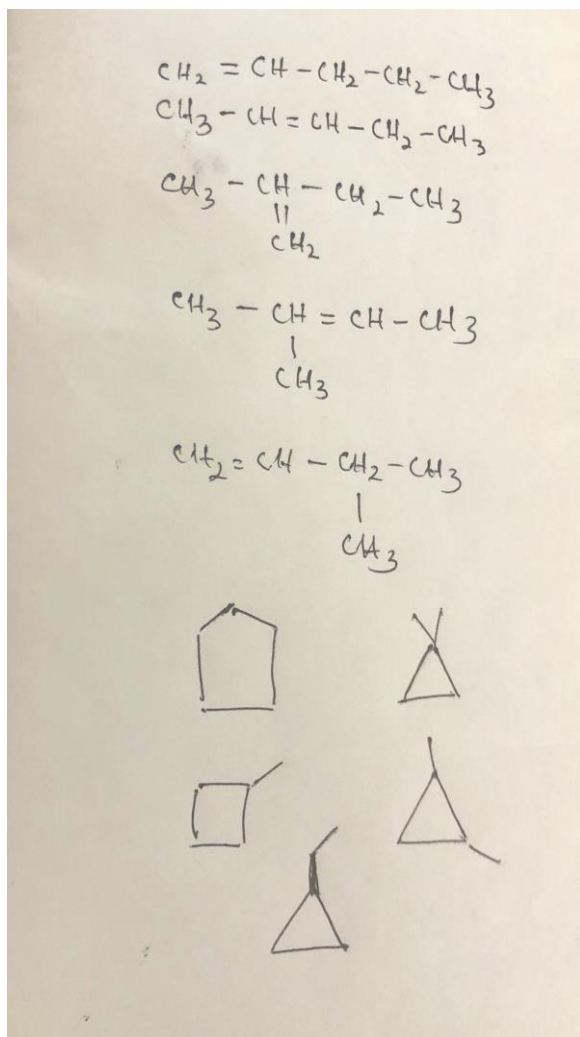 CH2 = CH - CH2 - CH2 - CH3
CH3 - CH = CH - CH2 - CH3
CH3 - CH - CH2 - CH3
||
CH2
CH3 - CH = CH - CH3
|
CH3
CH2 = CH - CH2 - CH3
|
CH3